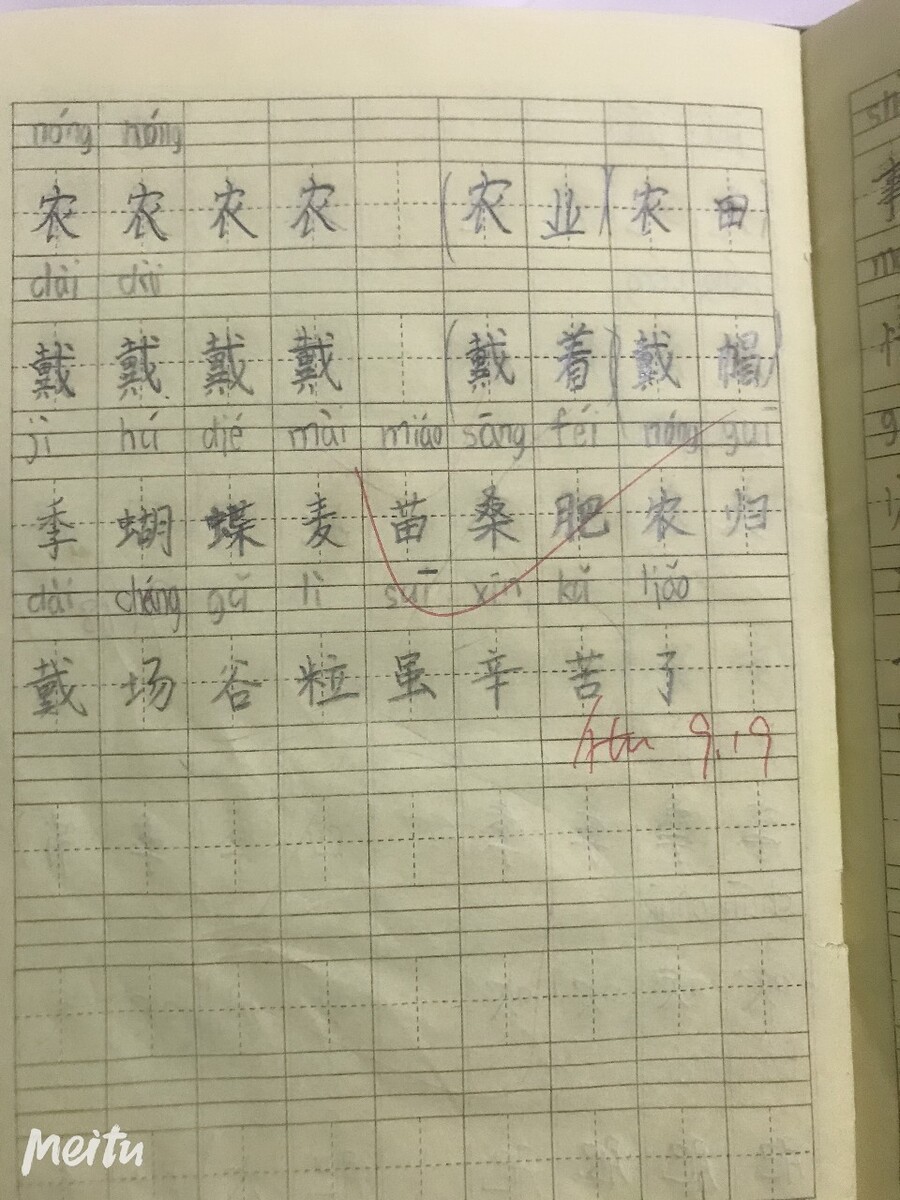 nóng nóng
农 农 农 农 (农 业)(农 田)
dài dài
戴 戴 戴 戴 (戴 着)(戴 帽)
jì hú dié mài miáo sāng féi nóng guī
季 蝴 蝶 麦 苗 桑 肥 农 归
dài cháng gǔ lì suī xīn kǔ liǎo
戴 场 谷 粒 虽 辛 苦 了
9.19
Meitu